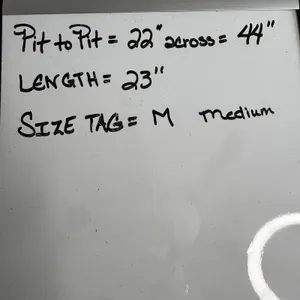 Pit to Pit = 22" across = 44"
LENGTH = 23"
SIZE TAG = M medium